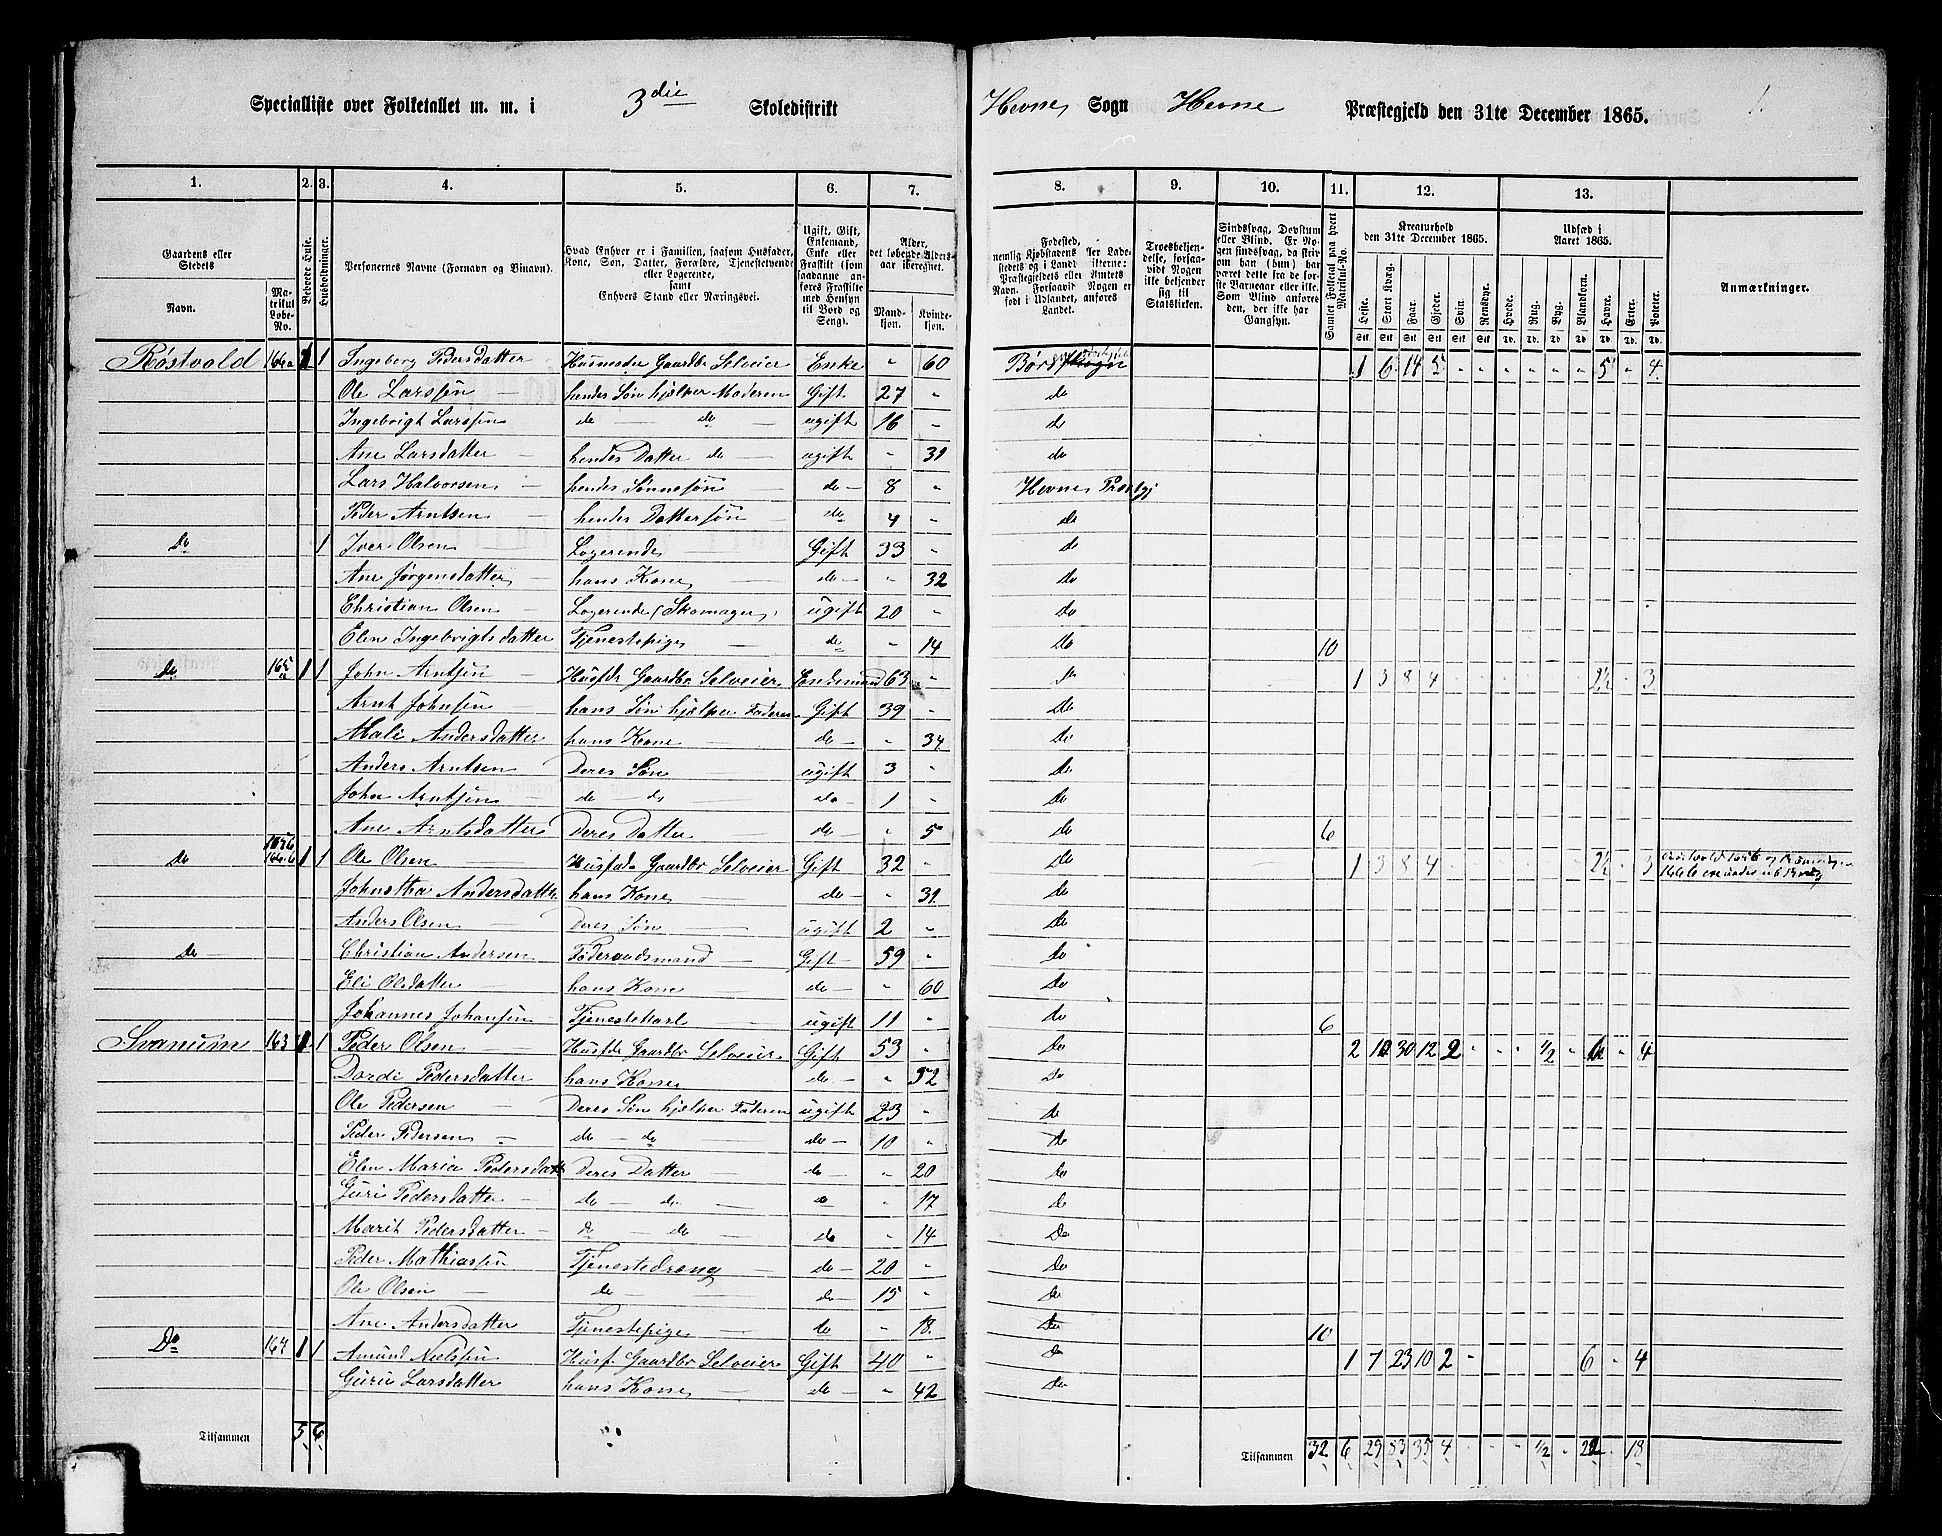 Specialliste over Folketallet m. m. i 3die Skoledistrikt Hevne Sogn Hevne Præstegjeld den 31te December 1865. 1.
1. 2. 3. 4. 5. 6. 7. 8. 9. 10. 11. 12. 13.
Gaardens eller Stedets
Navn. Matrikul Løbe-No.
Beboede Huse.
Husholdninger.
Personernes Navne (Fornavn og Binavn).
Hvad Enhver er i Familien, saasom Husfader, Kone, Søn, Datter, Forældre, Tjenestetyende eller Logerende, samt Enhvers Stand eller Næringsvei.
Ugift, Gift, Enkemand, Enke eller Fraskilt (som saadanne anføres Fraskilte med Hensyn til Bord og Seng).
Alder, det løbende Alders-aar iberegnet.
Mand-kjøn. Kvinde-kjøn.
Fødested, nemlig Kjøbstadens, Ladestedets eller Præstegjeldets Navn.
Troesbekjendelse, forsaavidt Nogen ikke bekjender sig til Statskirken.
Samlet Folketal paa hvert Matrikul-No.
Kreaturhold den 31te December 1865.
Udsæd i Aaret 1865.
Anmærkninger.
Heste. Stort Kvæg. Faar. Gjeder. Svin. Rensdyr. Hvede. Rug. Byg. Blandkorn. Havre. Erter. Poteter.
Røstvold 164a 1 1 Ingeborg Pedersdatter Husmoder Gaardbr Selveier Enke " 60 1 6 14 5 - - - - - - 5 - 4
Ole Larssøn hendes Søn hjælper Moderen Gift 27 " do
Ingebrigt Larssøn do do ugift 16 " do
Ane Larsdatter hendes Datter do ugift " 31 do
Lars Halvorsen hendes Sønnesøn do 8 " Hevne Prestgj
Peder Arntsen hendes Dattersøn do 4 " do
do 1 Iver Olsen Logerende Gift 33 " do
Ane Jørgensdatter hans Kone do " 32 do
Christian Olsen Logerende (Skomager) ugift 20 " do
Elen Ingebrigtsdatter Tjenestepige do " 14 do 10
do 165 a 1 1 John Arntsen Husfdr Gaardbr Selveier Enkemand 63 " do 1 3 8 4 2½ - 3
Arnt Johnsen hans Søn hjælper Faderen Gift 39 " do
Mali Andersdatter hans Kone do " 34 do
Anders Arntsen Deres Søn ugift 3 " do
John Arntsen do do do 1 " do
Ane Arntsdatter Deres Datter do " 5 do 6
do 165b 166b 1 1 Ole Olsen Husfadr Gaardbr Selveier Gift 32 " do 1 3 8 4 2½ - 3
Johnetha Andersdatter hans Kone do " 31 do
Anders Olsen Deres Søn ugift 2 " do
do Christian Andersen Føderaadsmand Gift 59 " do
Eli Olsdatter hans Kone do " 60 do
Johannes Johansen Tjenestekarl ugift 11 " do 6
Svanum 163 1 1 Peder Olsen Husfdr Gaardbr Selveier Gift 53 " do 2 10 30 12 2 - - - ½ - 6 - 4
Dordi Pedersdatter hans Kone do " 52 do
Ole Pedersen Deres Søn hjælper Faderen ugift 23 " do
Peder Pedersen do do do 10 " do
Elen Maria Pedersdatt Deres Datter do " 20 do
Guri Pedersdatter do do do " 17 do
Marit Pedersdatter do do do " 14 do
Peder Mathiassen Tjenestedreng do 20 " do
Ole Olsen do do 15 " do
Ane Andersdatter Tjenestepige do " 18 do 10
Do 164 1 1 Amund Nielssen Husf. Gaardbr Selveier Gift 40 " do 1 7 23 10 2 - 6 - 4
Guru Larsdatter hans Kone do " 42 do
Tilsammen 5 6 Tilsammen 32 6 29 83 35 4 - - - ½ - 22 - 18